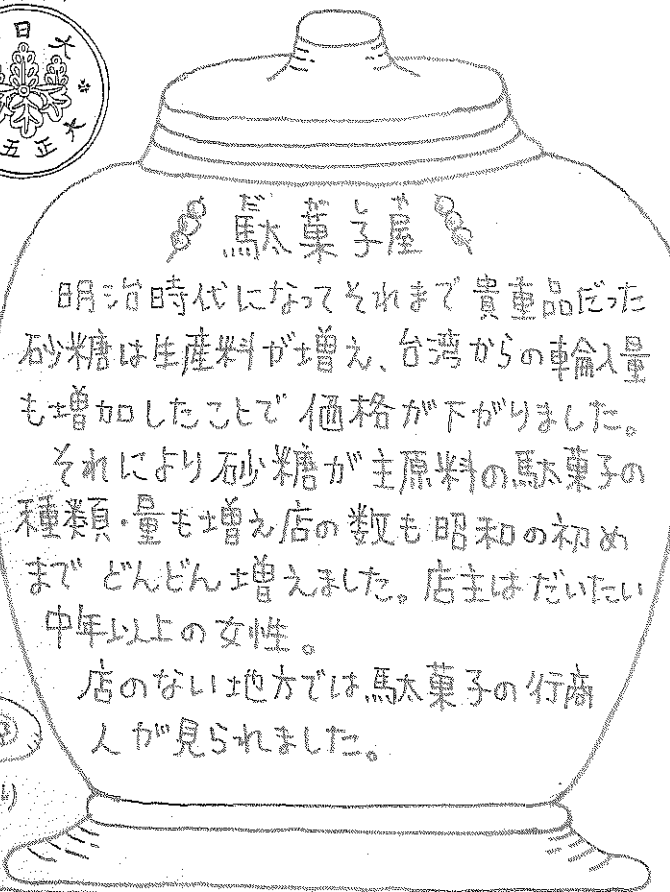 大日
大正五
だがしや
駄菓子屋
明治時代になってそれまで貴重品だった
砂糖は生産料が増え、台湾からの輪入量
も増加したことで価格が下がりました。
それにより砂糖が主原料の駄菓子の
種類・量も増え店の数も昭和の初め
までどんどん増えました。店主はだいたい
中年以上の女性。
店のない地方では駄菓子の行商
人が見られました。
り